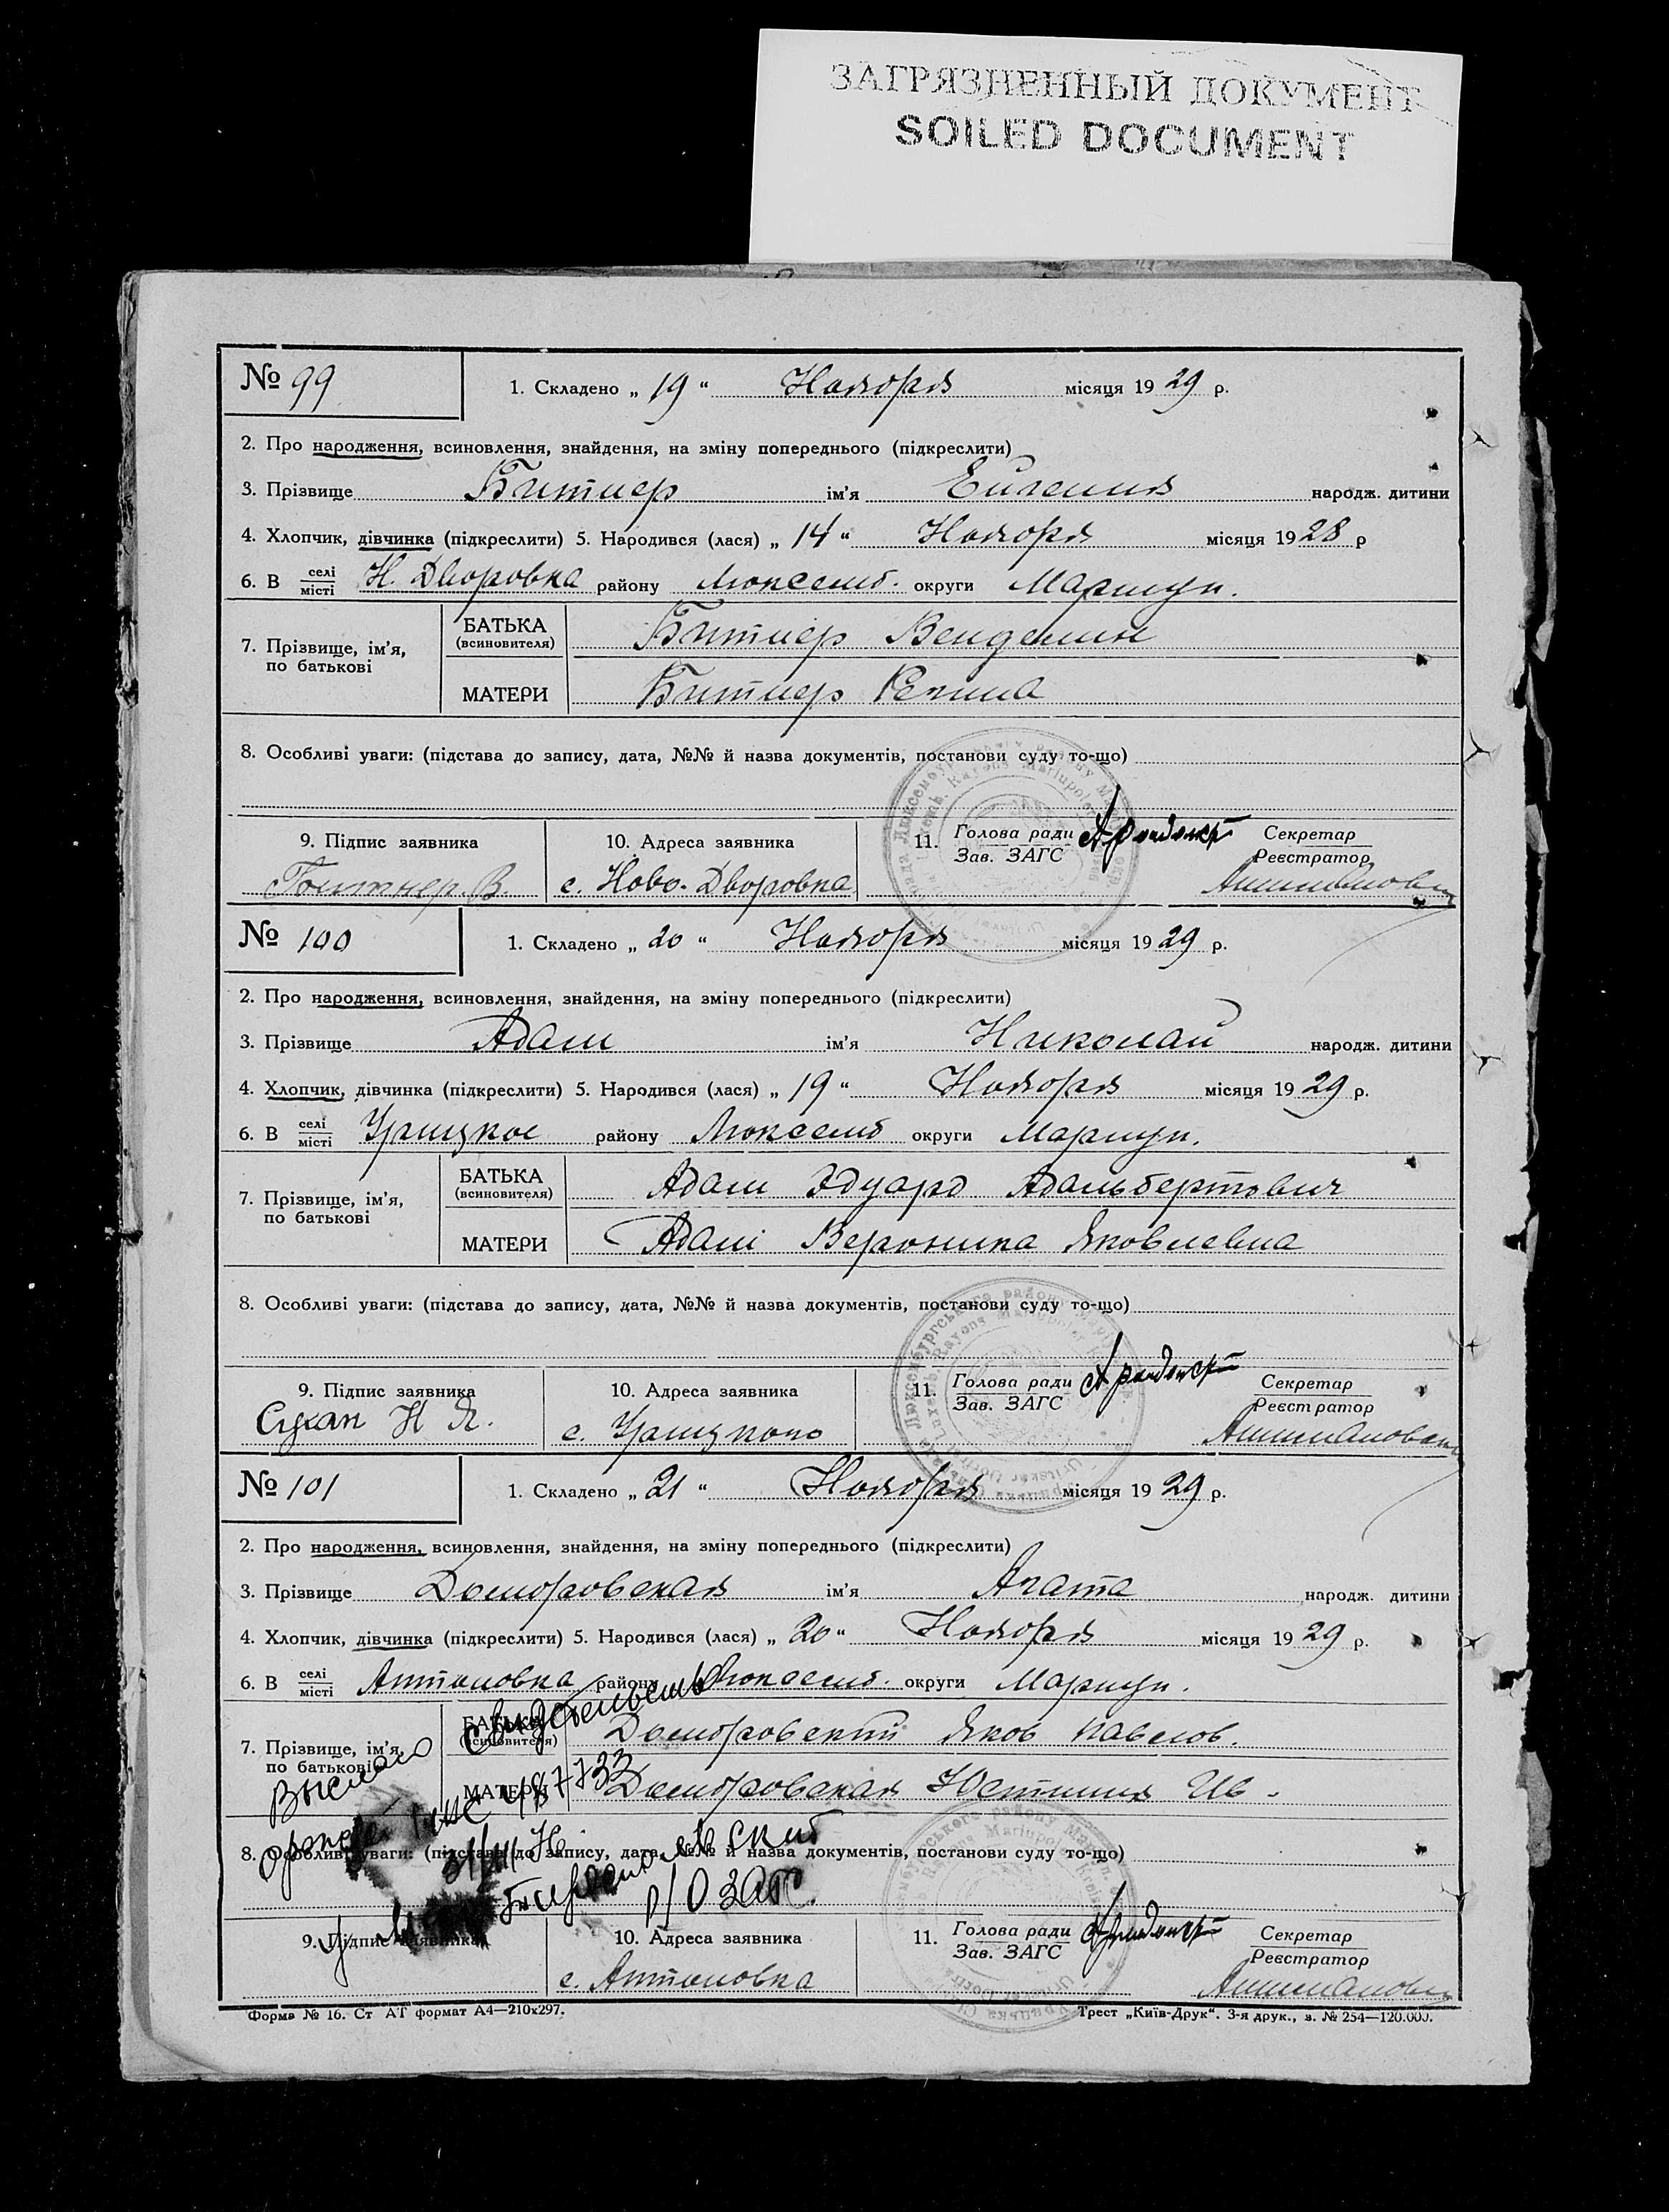 ЗАГРЯЗНЕННЫЙ ДОКУМЕНТ
SOILED DOCUMENT
№ 99
1. Складено „ 19 “ Ноября місяця 1929 р.
2. Про народження, всиновлення, знайдення, на зміну попереднього (підкреслити)
3. Прізвище Битнер ім'я народж. дитини
4. Хлопчик, дівчинка (підкреслити) 5. Народився (лася) „ 14 “ Ноября місяця 1928 р
6. В селі місті Н. Дворовка району Люксемб. округи Мариуп.
7. Прізвище, ім'я, по батькові
БАТЬКА (всиновителя) Битнер Венделин
МАТЕРИ Битнер
8. Особливі уваги: (підстава до запису, дата, №№ й назва документів, постанови суду то-що)
9. Підпис заявника 10. Адреса заявника 11. Голова ради Зав. ЗАГС Секретар Реєстратор
с. Ново-Дворовка
№ 100
1. Складено „ 20 “ Ноября місяця 1929 р.
2. Про народження, всиновлення, знайдення, на зміну попереднього (підкреслити)
3. Прізвище Адам ім'я Николай народж. дитини
4. Хлопчик, дівчинка (підкреслити) 5. Народився (лася) „ 19 “ Ноября місяця 1929 р.
6. В селі місті Урицкое району Люксемб округи Мариуп.
7. Прізвище, ім'я, по батькові
БАТЬКА (всиновителя) Адам Эдуард Адальбертович
МАТЕРИ Адам Вероника Яковлевна
8. Особливі уваги: (підстава до запису, дата, №№ й назва документів, постанови суду то-що)
9. Підпис заявника 10. Адреса заявника 11. Голова ради Зав. ЗАГС Секретар Реєстратор
с.
№ 101
1. Складено „ 21 “ Ноября місяця 1929 р.
2. Про народження, всиновлення, знайдення, на зміну попереднього (підкреслити)
3. Прізвище Домбровская ім'я Агата народж. дитини
4. Хлопчик, дівчинка (підкреслити) 5. Народився (лася) „ 20 “ Ноября місяця 1929 р.
6. В селі місті Антоновка району Люксемб. округи Мариуп.
7. Прізвище, ім'я, по батькові
БАТЬКА (всиновителя) Домбровский Яков Павлов.
МАТЕРИ Домбровская Юстиния Ив.
Выслано свидетельство
8. Особливі уваги: (підстава до запису, дата, №№ й назва документів, постанови суду то-що)
р/о загс.
9. Підпис заявника 10. Адреса заявника 11. Голова ради Зав. ЗАГС Секретар Реєстратор
с. Антоновка
Форма № 16. Ст АТ формат А4—210x297.
Трест „Київ-Друк“. 3-я друк., з. № 254—120.000.